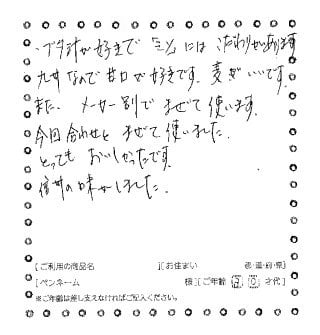 ブタ汁が好きで「ミソ」にはこだわりがあります
九州なので甘口で好きです。麦がいいです。
また、メーカー別でまぜて使います。
今回合わせとまぜて使いました。
とってもおいしかったです。
信州の味がしました。
[ご利用の商品名 ][お住まい 都・道・府・県]
[ペンネーム 様][ご年齢 30 才代]
※ご年齢は差し支えなければご記入ください。